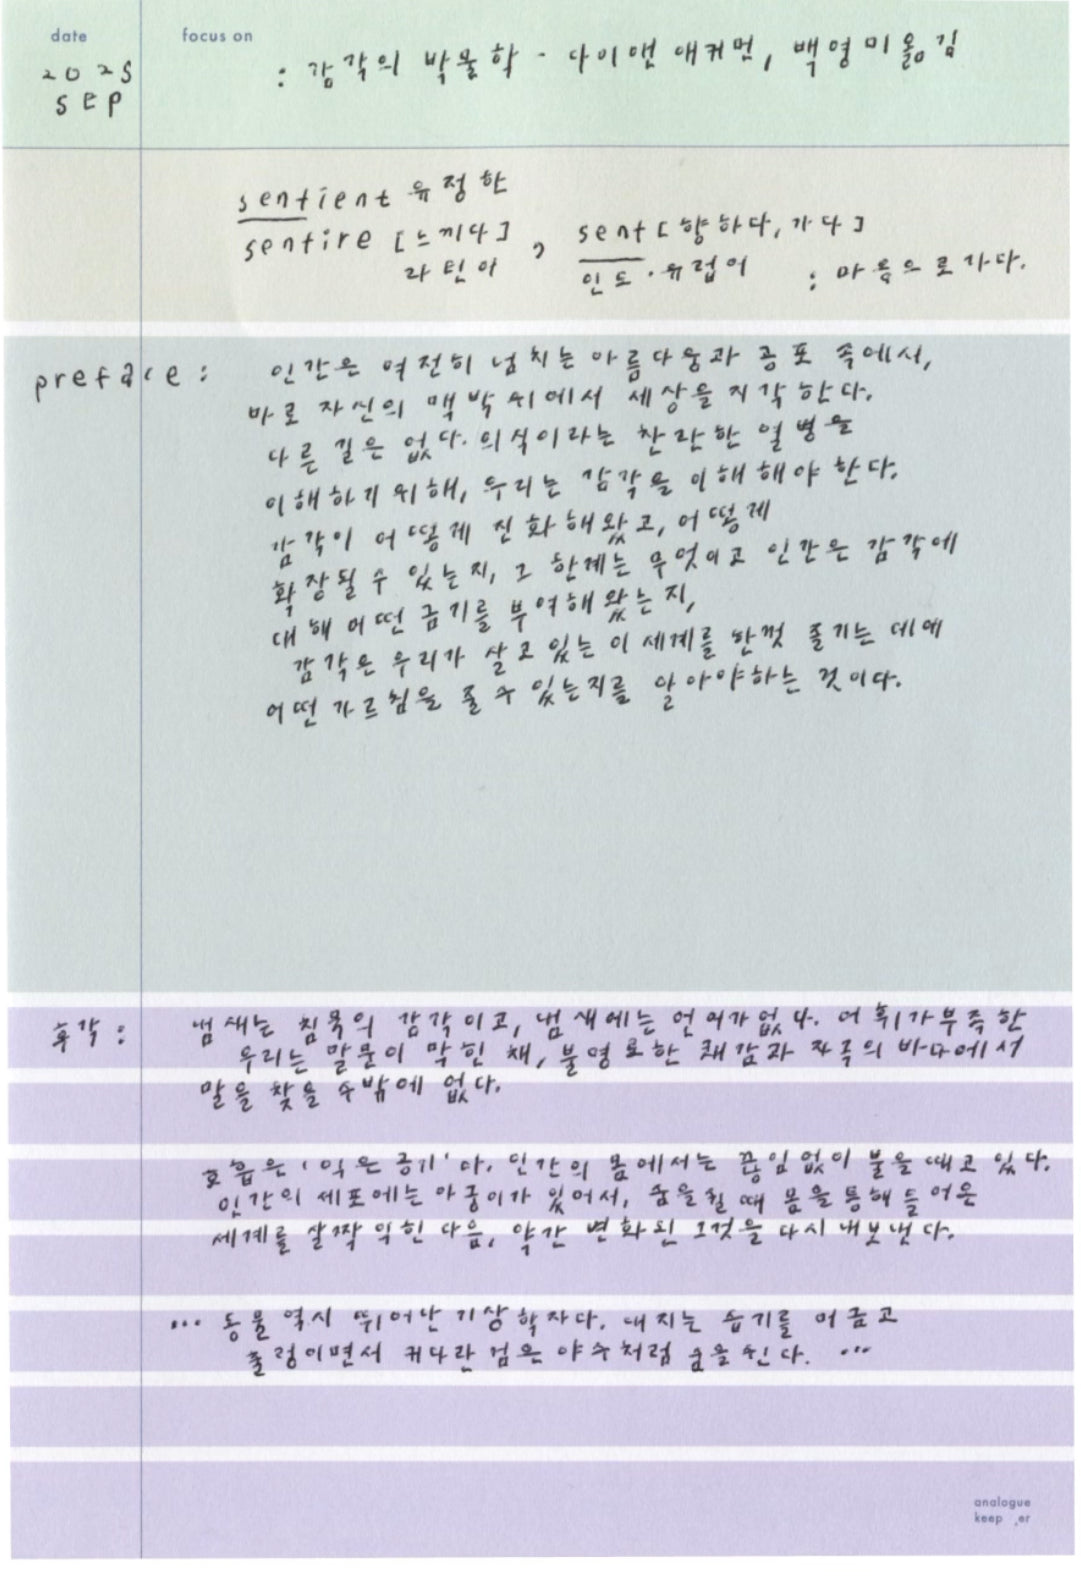 date
focus on
2025
SEP
: 감각의 박물학 - 다이앤 애커먼, 백영미 옮김
sentient 유정한
sentire [느끼다]
라틴어
, sent [향하다, 가다]
인도·유럽어
: 마음으로 가다.
preface : 인간은 여전히 넘치는 아름다움과 공포 속에서,
바로 자신의 맥박 위에서 세상을 지각한다.
다른 길은 없다. 의식이라는 찬란한 열병을
이해하기 위해, 우리는 감각을 이해해야 한다.
감각이 어떻게 진화해왔고, 어떻게
확장될 수 있는지, 그 한계는 무엇이고 인간은 감각에
대해 어떤 금기를 부여해왔는지,
감각은 우리가 살고 있는 이 세계를 한껏 즐기는 데에
어떤 가르침을 줄 수 있는지를 알아야하는 것이다.
후각 : 냄새는 침묵의 감각이고, 냄새에는 언어가 없다. 어휘가 부족한
우리는 말문이 막힌 채, 불명료한 쾌감과 자극의 바다에서
말을 찾을 수밖에 없다.
호흡은 '익은 공기'다. 인간의 몸에서는 끊임없이 불을 때고 있다.
인간의 세포에는 아궁이가 있어서, 숨을 쉴 때 몸을 통해 들어온
세계를 살짝 익힌 다음, 약간 변화된 그것을 다시 내보낸다.
... 동물 역시 뛰어난 기상학자다. 대지는 습기를 머금고
출렁이면서 커다란 검은 야수처럼 숨을 쉰다. ...
analogue
keep ,er